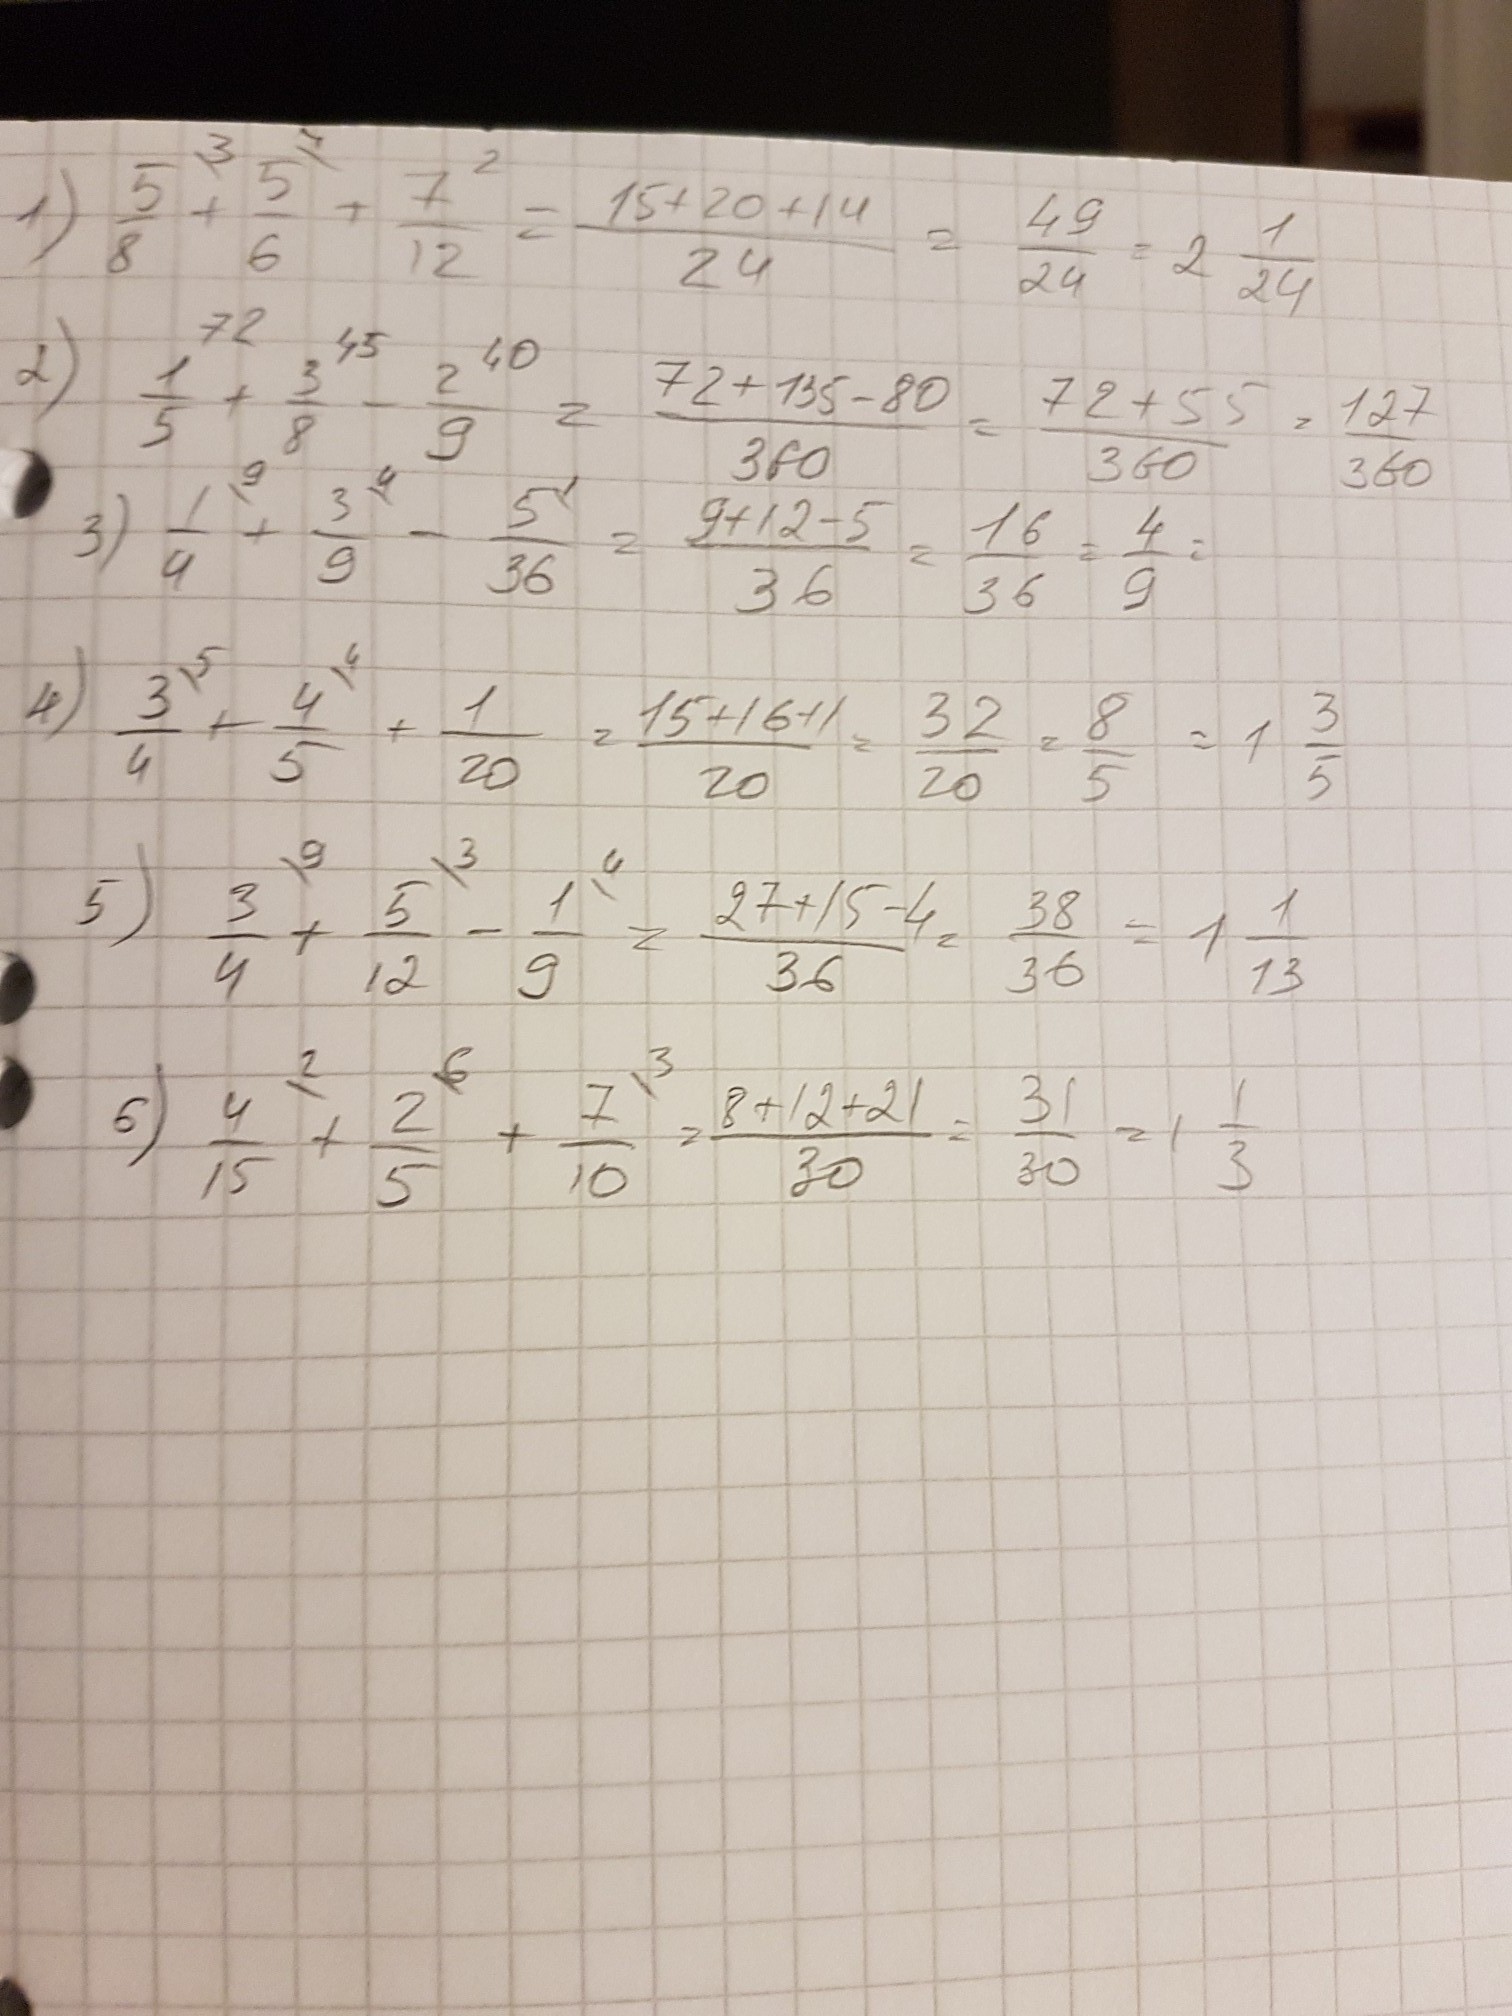 1) 5/8 \3 + 5/6 \4 + 7/12 2 = 15+20+14/24 = 49/24 = 2 1/24
2) 1/5 72 + 3/8 45 - 2/9 40 = 72+135-80/360 = 72+55/360 = 127/360
3) 1/4 \9 + 3/9 \4 - 5/36 \1 = 9+12-5/36 = 16/36 = 4/9 =
4) 3/4 \5 + 4/5 \4 + 1/20 = 15+16+1/20 = 32/20 = 8/5 = 1 3/5
5) 3/4 \9 + 5/12 \3 - 1/9 \4 = 27+15-4/36 = 38/36 = 1 1/13
6) 4/15 \2 + 2/5 \6 + 7/10 \3 = 8+12+21/30 = 31/30 = 1 1/3